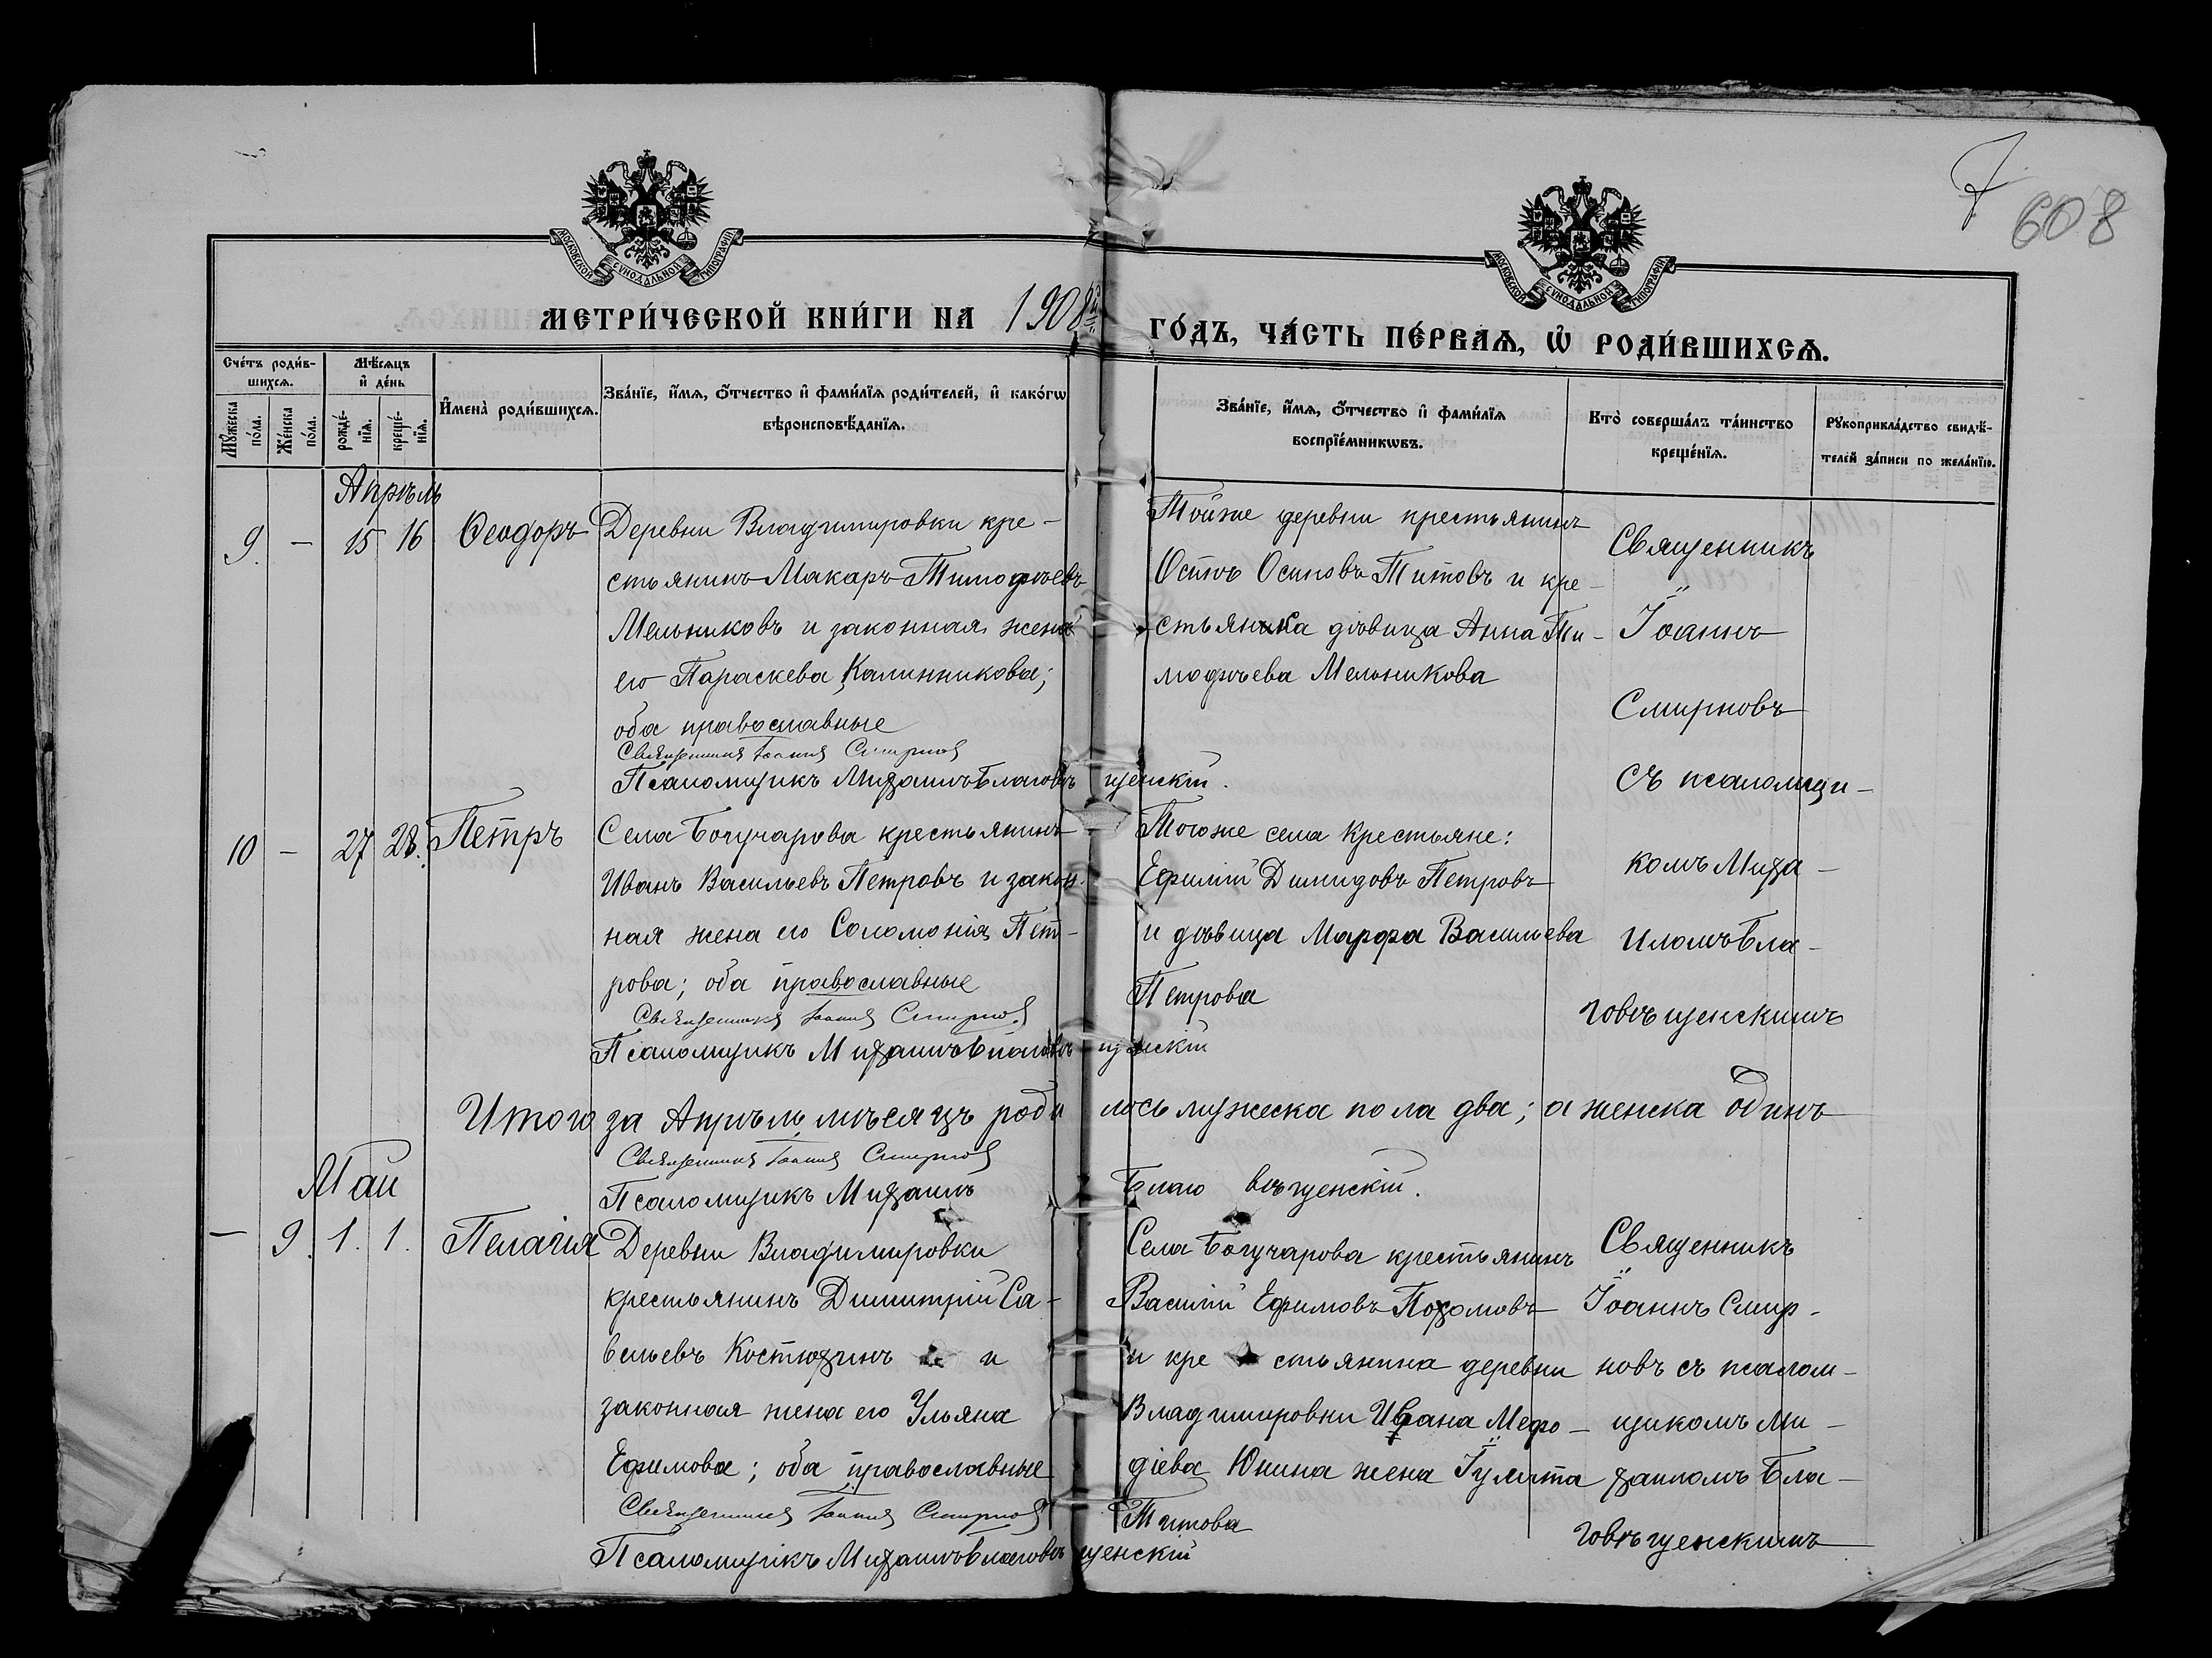 7
608
МОСКОВСКОЙ СУНОДАЛЬНОЙ ТИПОГРАФІИ
МОСКОВСКОЙ СУНОДАЛЬНОЙ ТИПОГРАФІИ
МЕТРИ́ЧЕСКОЙ КНИ́ГИ НА 1908й
ГО́ДЪ, ЧА́СТЬ ПЕ́РВАѦ, Ѡ҆ РОДИ́ВШИХСѦ.
Сче́тъ роди́в-
шихсѧ.
Мѣ́сѧцъ
и҆ де́нь
Мꙋ́жеска
по́ла.
Же́нска
по́ла.
рожде́-
нїѧ.
креще́-
нїѧ.
И҆мена̀ роди́вшихсѧ.
Зва́нїе, и҆́мѧ, ѻ҆́тчество и҆ фами́лїѧ роди́телей, и҆ како́гѡ
вѣроисповѣ́данїѧ.
Зва́нїе, и҆́мѧ, ѻ҆́тчество и҆ фами́лїѧ
воспрїе́мникѡвъ.
Кто̀ соверша́лъ та́инство
креще́нїѧ.
Рꙋкоприкла́дство свидѣ́-
телей за́писи по жела́нїю.
Апрѣль
9. – 15 16 Ѳеодоръ
Деревни Владимировки кре-
стьянинъ Макаръ Тимоѳѣевъ
Мельниковъ и законная жена
его Параскева Калинникова;
оба православные
Священникъ Іоаннъ Смирновъ
Псаломщикъ Михаилъ Благовѣщенскій.
Тойже деревни крестьянинъ
Осипъ Осиповъ Титовъ и кре-
стьянка дѣвица Анна Ти-
моѳѣева Мельникова
Священникъ
Іоаннъ
Смирновъ
съ псаломщи-
комъ Миха-
иломъ Бла-
говѣщенскимъ
10 – 27 28. Петръ
Села Богучарова крестьянинъ
Иванъ Васильевъ Петровъ и закон-
ная жена его Соломонія Пет-
рова; оба православные
Священникъ Іоаннъ Смирновъ
Псаломщикъ Михаилъ Благовѣщенскій
Тогоже села крестьяне:
Ефимій Димидовъ Петровъ
и дѣвица Марфа Васильева
Петрова
Итого за Апрѣль мѣсяцъ родилось мужеска пола два; а женска одинъ
Священникъ Іоаннъ Смирновъ
Псаломщикъ Михаилъ Благовѣщенскій.
Май
– 9. 1. 1. Пелагія
Деревни Владимировки
крестьянинъ Димитрій Са-
вельевъ Костюхинъ и
законная жена его Ульяна
Ефимова; оба православные
Священникъ Іоаннъ Смирновъ
Псаломщикъ Михаилъ Благовѣщенскій
Села Богучарова крестьянинъ
Василій Ефимовъ Пахомовъ
и крестьянина деревни
Владимировки Ивана Мефо-
діева Юнина жена Іулита
Титова
Священникъ
Іоаннъ Смир-
новъ съ псалом-
щикомъ Ми-
хаиломъ Бла-
говѣщенскимъ